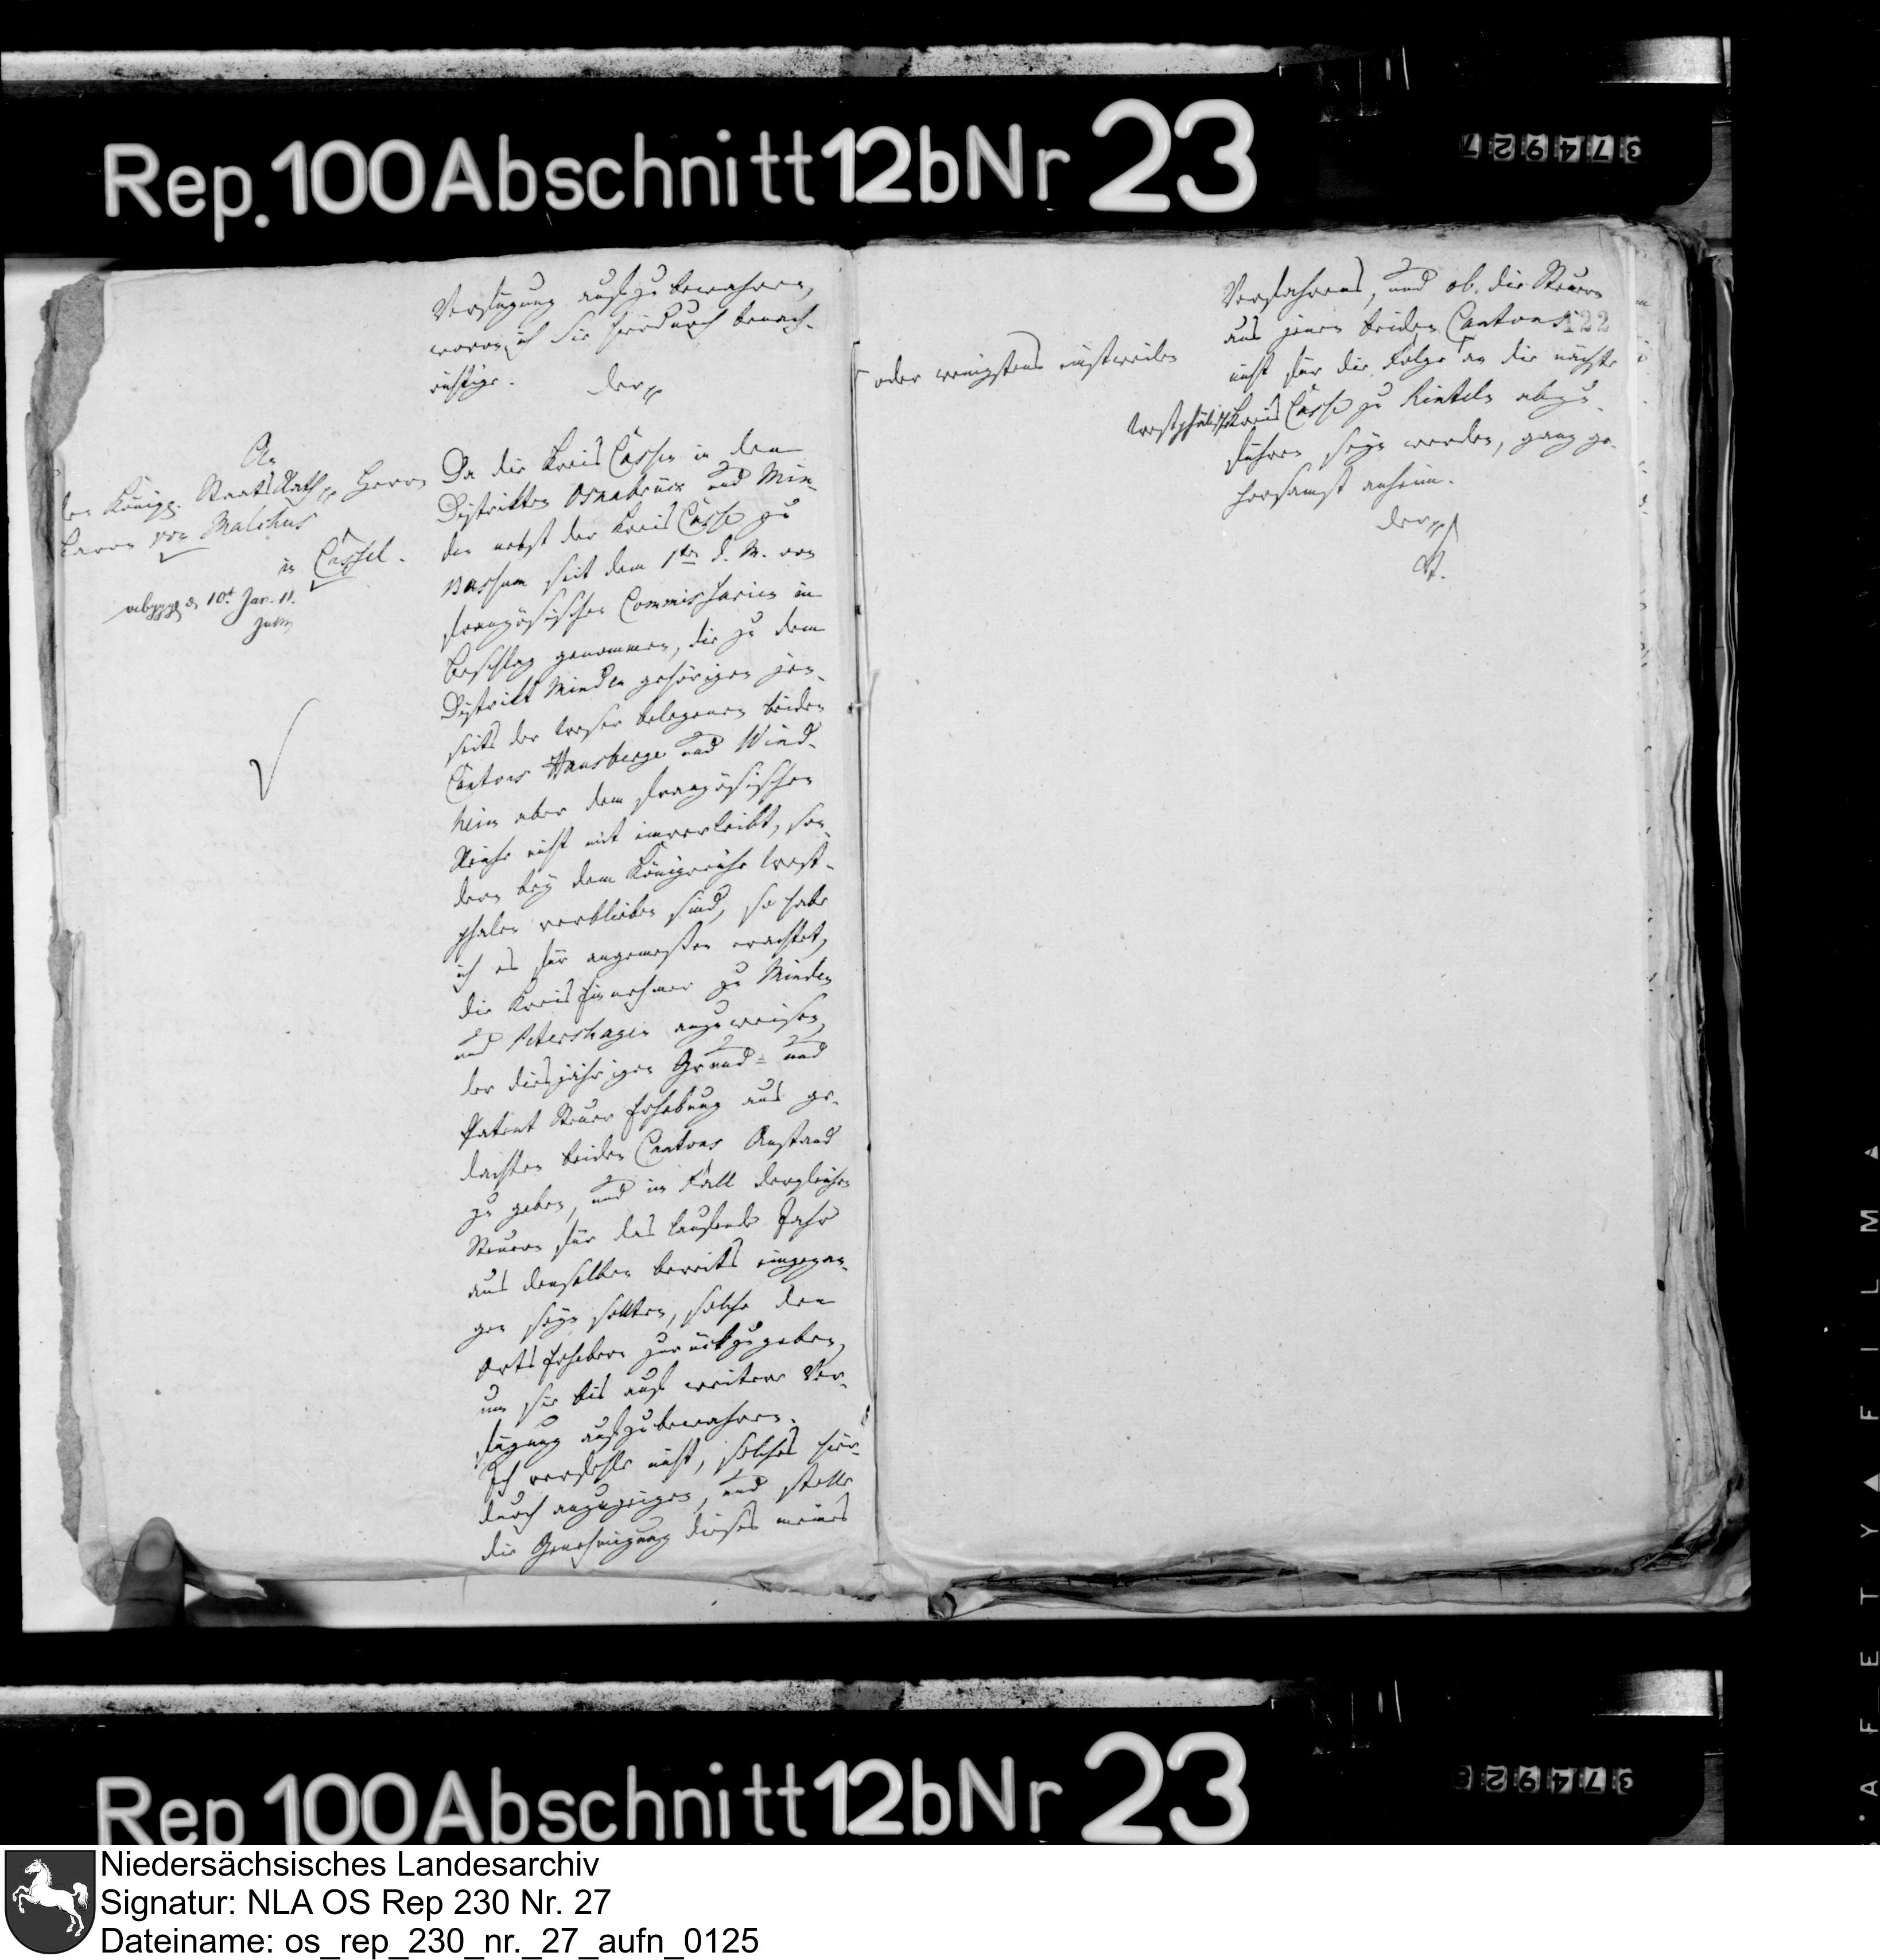 Rep. 100 Abschnitt 12b Nr 23
374927
Verfügung aufzubewahren,
wovon ich Sie hiedurch benach-
richtige.
Der
An
den Königl. StaatsRath Herrn
Baron von Malchus
in Cassel.
abgeg. d. 10t Jan. 11.
Da die KreisCassen in den
Distrikten Osnabrück und Min-
den nebst der KreisCasse zu
Bassum seit dem 1ten d. M. von
französischen Commissarien in
Beschlag genommen, die zu dem
Distrikt Minden gehörigen jen-
seits der Weser belegenen beiden
Cantons Hausberge und Wind-
heim aber dem französischen
Reiche nicht mit inverleibt, son-
dern bey dem Königreiche West-
phalen verblieben sind, so habe
ich es für angemessen erachtet,
die KreisEinnehmer zu Minden
und Petershagen anzuweisen,
der diesjährigen Grund- und
Patent Steuer Erhebung aus ge-
dachten beiden Cantons Anstand
zu geben, und im Fall dergleichen
Steuern für das laufende Jahr
aus denselben bereits eingegan-
gen seyn sollten, solche den
OrtsErhebern zurückzugeben,
um sie bis auf weitere Ver-
fügung aufzubewahren.
Ich verfehle nicht, solches hier-
durch anzuzeigen, und stelle
die Genehmigung dieses meines
122
Verfahrens, und ob die Steuern
aus jenen beiden Cantons
oder wenigstens einstweilen
nicht für die Folge an die nächste
westphälische KreisCasse zu Rinteln abzu-
führen seyn werden, ganz ge-
horsamst anheim.
Der
SAFETY FILM
Rep 100 Abschnitt 12b Nr 23
374928
Niedersächsisches Landesarchiv
Signatur: NLA OS Rep 230 Nr. 27
Dateiname: os_rep_230_nr._27_aufn_0125